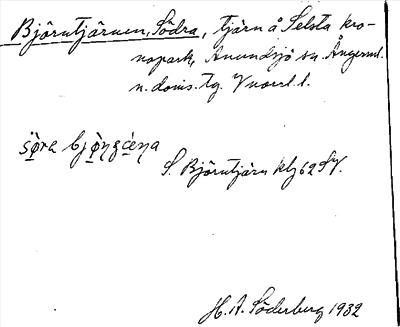 Björntjärnen, Södra, tjärn å Selsta kro-
nopark, Anundsjö sn. Ångerml.
n. doms. tg. V norrl. l.
S. Björntjärn klj 62 SV.
H. A. Söderberg 1932